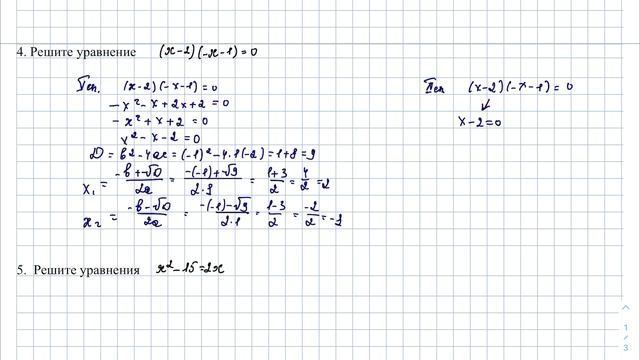 4. Решите уравнение (x-2)(-x-1)=0
I сп. (x-2)(-x-1)=0
-x²-x+2x+2=0
-x²+x+2=0
x²-x-2=0
D=b²-4ac=(-1)²-4·1(-2)=1+8=9
x₁ = -b+√D/2a = -(-1)+√9/2·1 = 1+3/2 = 4/2 = 2
x₂ = -b-√D/2a = -(-1)-√9/2·1 = 1-3/2 = -2/2 = -1
II сп. (x-2)(-x-1)=0
x-2=0
5. Решите уравнения x²-15=2x
1
3